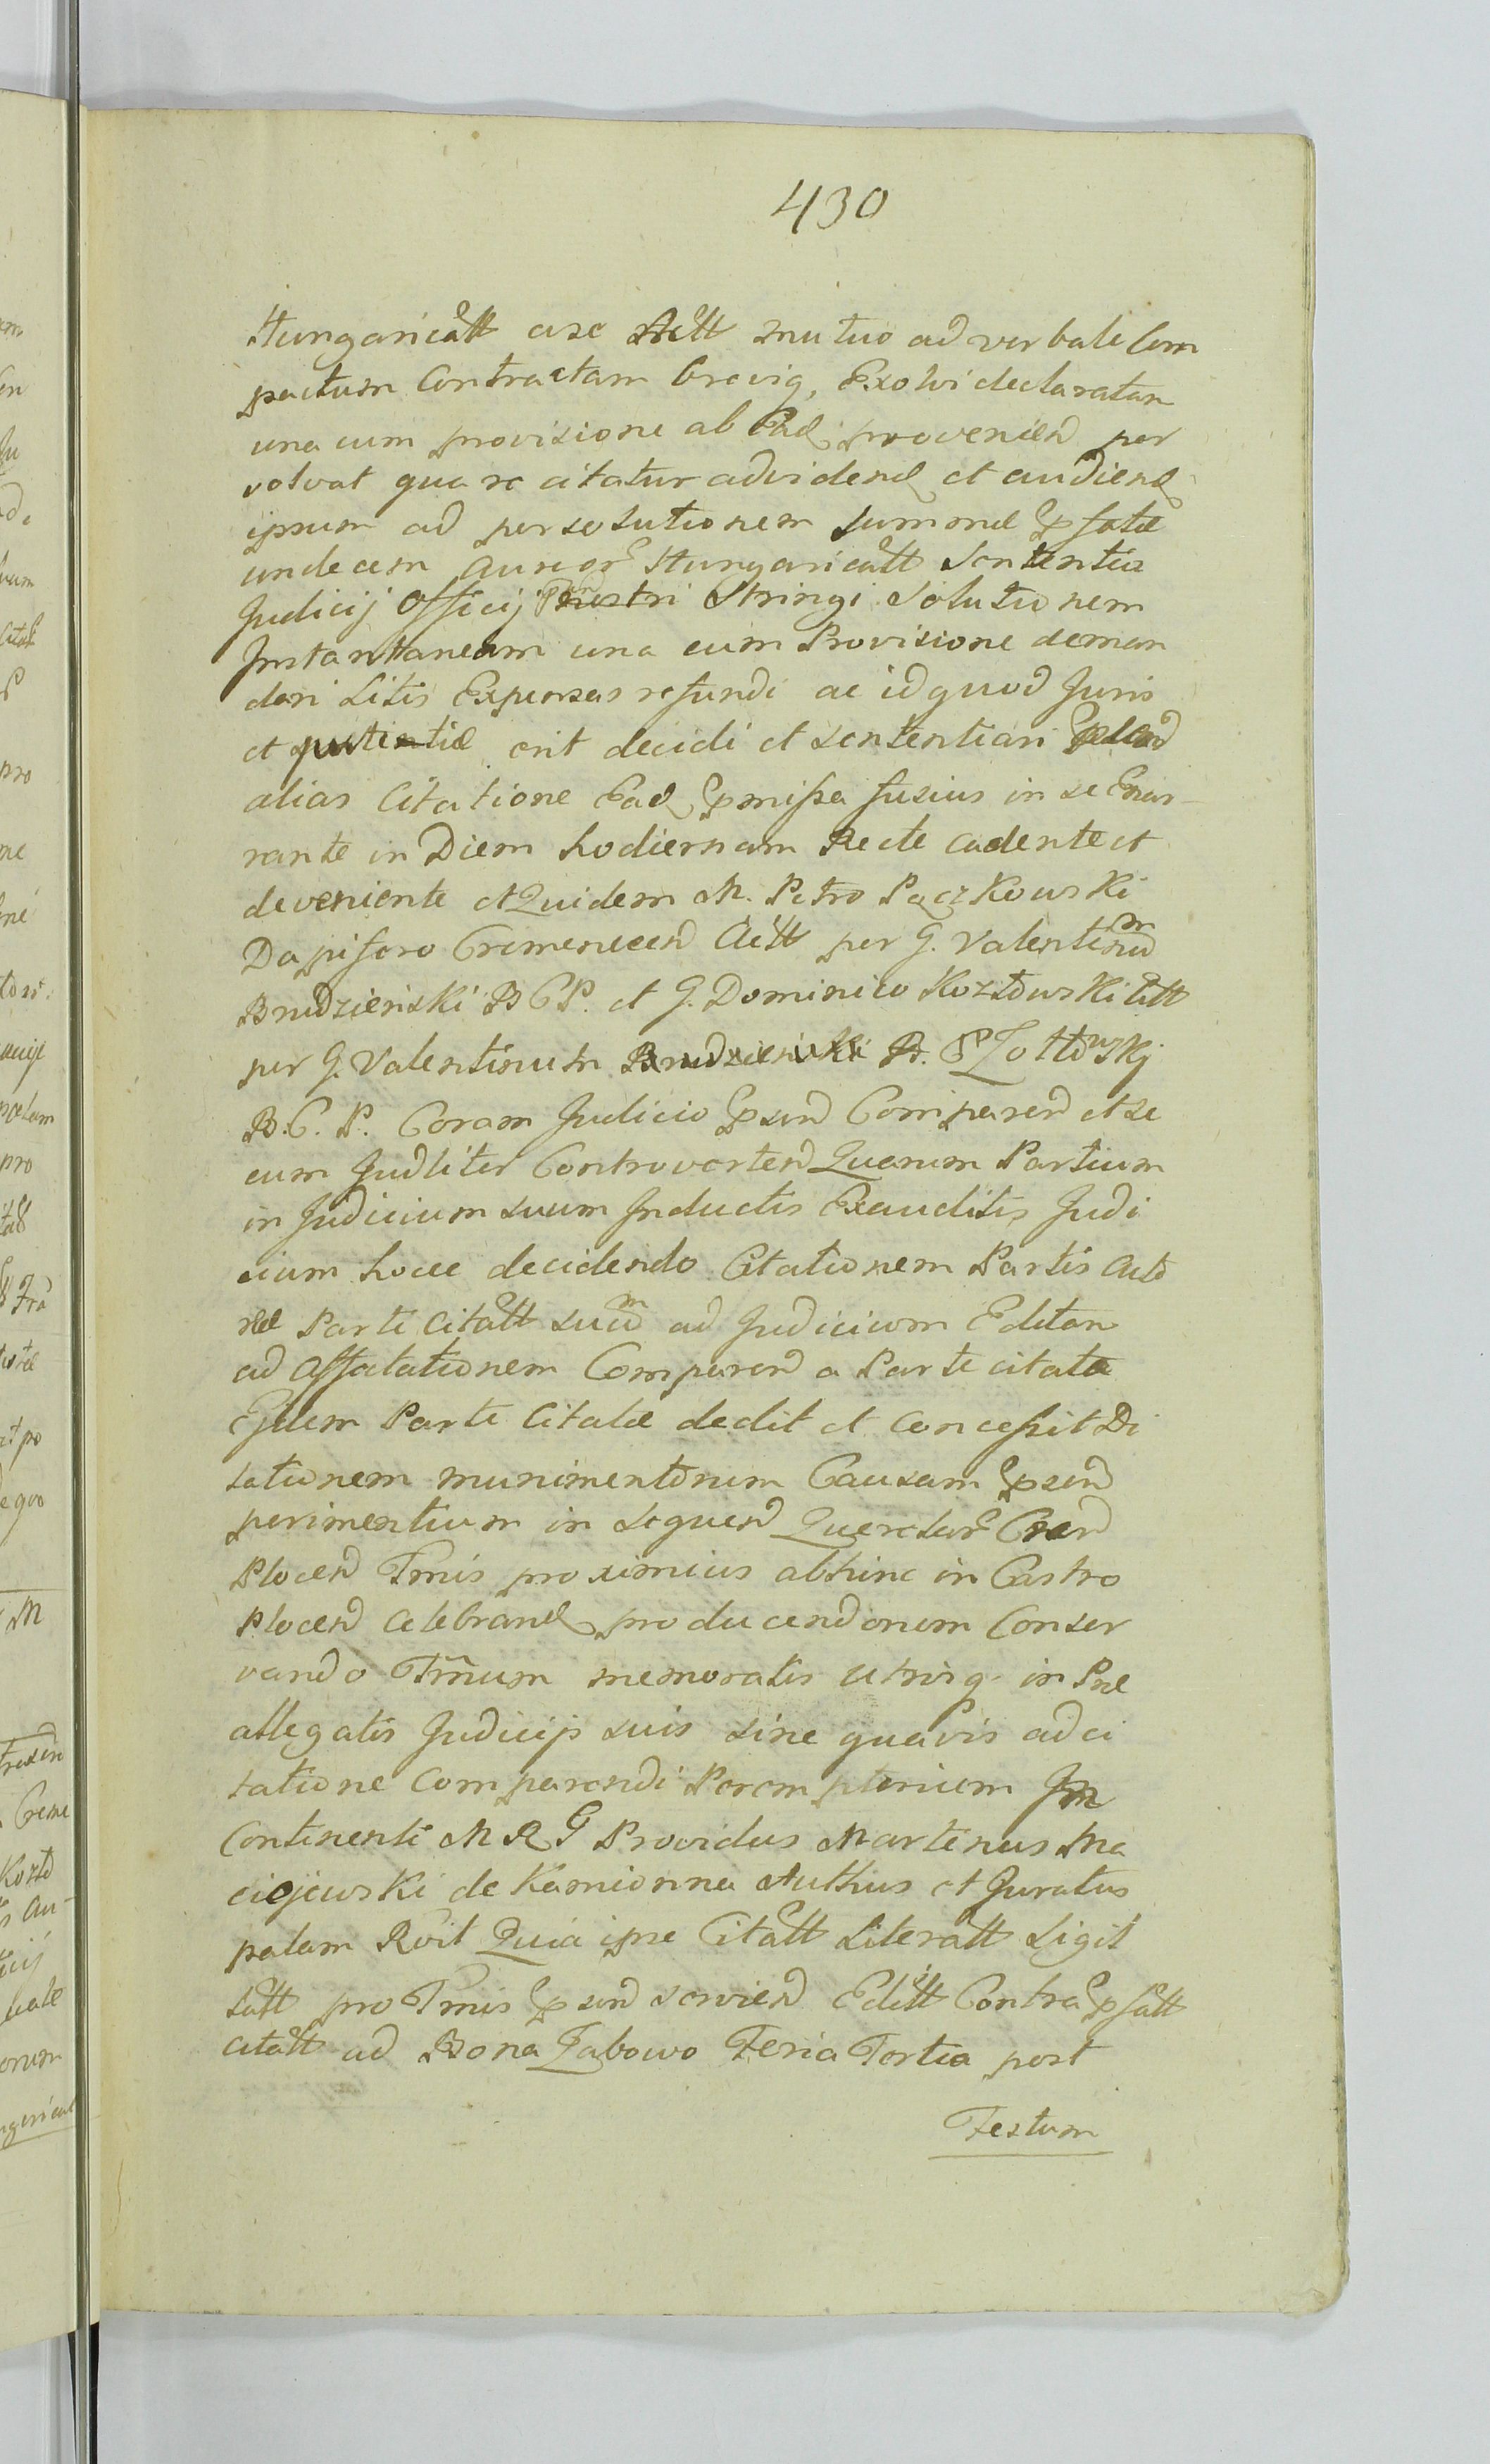 430
Hungaricalt asc Actt mutuo ad verbale Com
pactum Contractam breviq, Exolvi declaratan
una cum provisione ab Ead provenien per
solvat qua re citatur advidend et audiend
ipsum ad persolutionem summæ Epsatæ
undecem aureor Hungaricalt Sententia
Judicij Officij Stringi Solutionem
Instantaneam una cum Provisione deman
dari Litis Expensas refundi ac id quod Juris
et justitiæ erit decidi et sententiari
alias Citatione Ead Epmissa fusius in se Enar-
rante in Diem hodiernam Recte cadente et
deveniente et Quidem M. Petro Pączkowski
Dapifero Cremenecen Actt per G. Valentinum
Brudzienski B C P. et G. Dominico Kozłowski Citt
per G. Valentinum Brudzienski B. P Zołtowskj
B. C. P. Coram Judicio Epsen Comparen et se
cum Judliter Controverten Quarum Partium
in Judicium suum Inductis Exauditis Judi
cium hocce decidendo Citationem Partis Acto
reæ Parti citatt suum ad Judicium Editan
ad Affectationem Comparen a Parte citata
Ejdem Parti Citatæ dedit et concessit Di
lationem munimentorum Causam Epsen
perimentium in sequen Querelar Cren
Plocen Tmis proximius abhinc in Castro
Plocen celebrand producendorum Conser
vando Tminum memoratis utrisq in Præ
allegatis Judicijs suis sine quavis adci
tatione comparendi Peremptorium In
Continenti M R G Providus Martinus Ma
ciejewski de Kamionna Authius et Juratus
palam Rvit Quia ipse Citatt Literatt Sigil
latt pro Tmis Epsen servien Editt Contra Epsatt
citatt ad Bona Zabowo Feria Tertia post
Festum